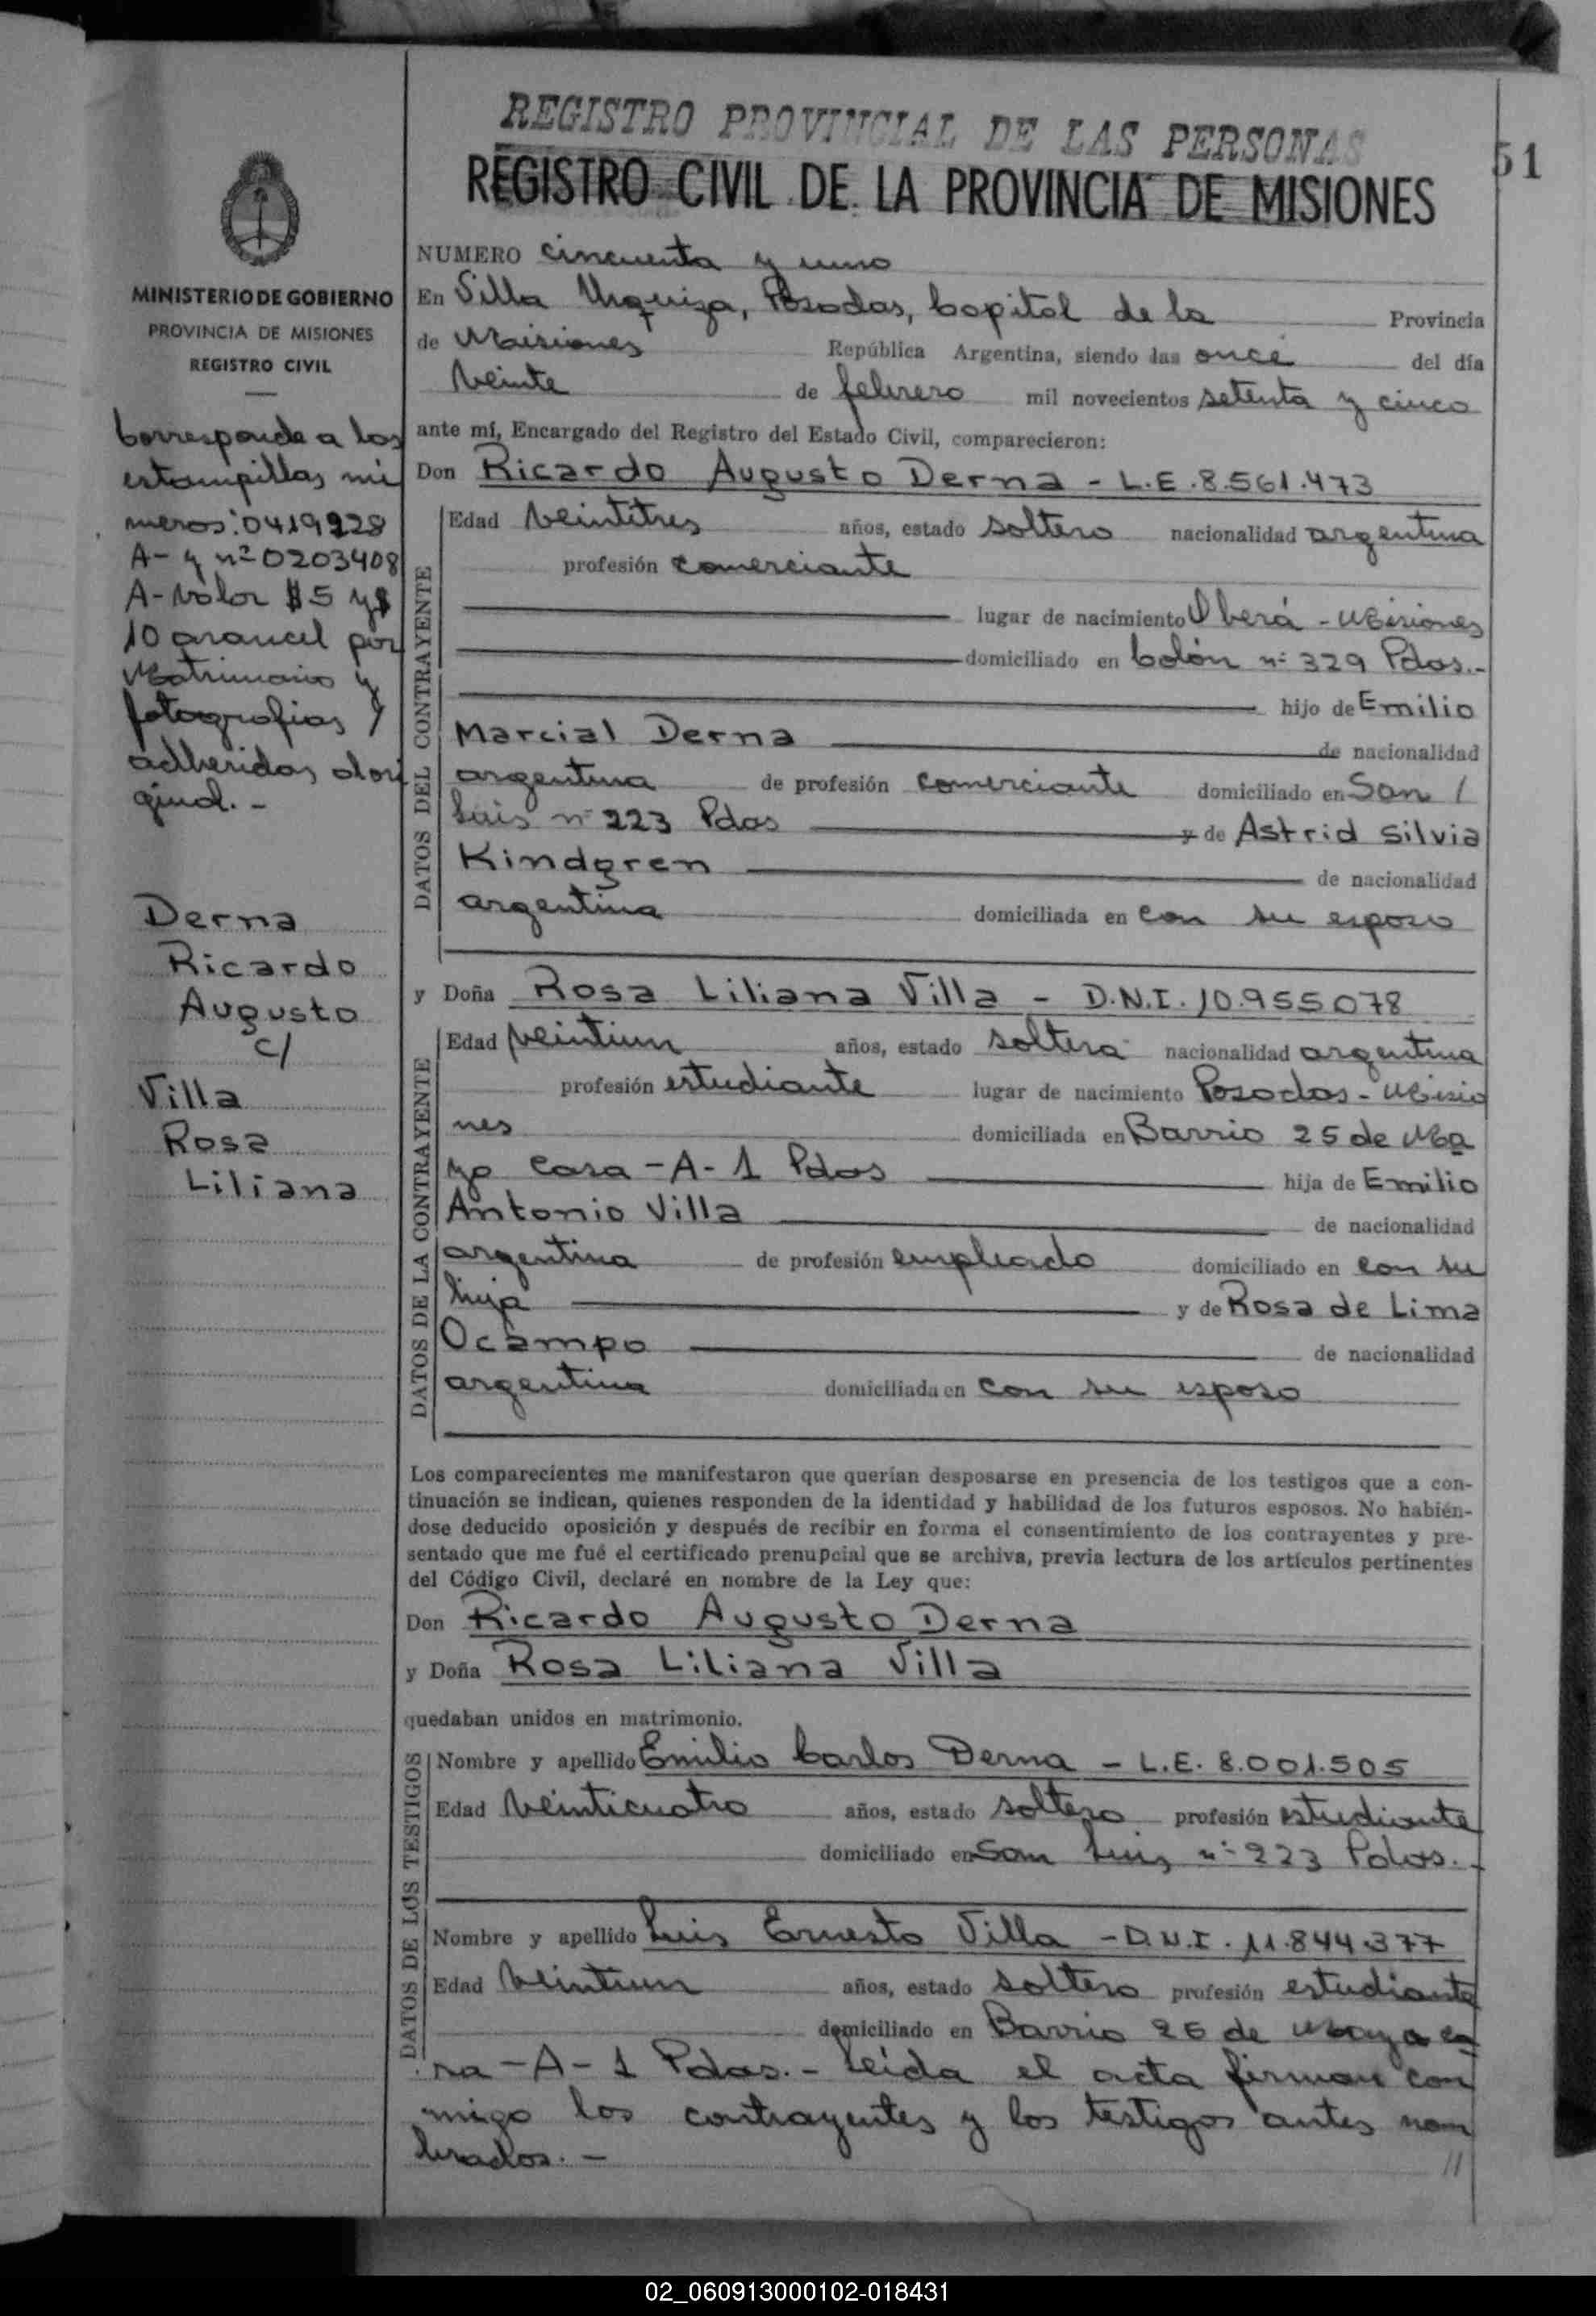 REGISTRO PROVINCIAL DE LAS PERSONAS
REGISTRO CIVIL DE LA PROVINCIA DE MISIONES
51
MINISTERIO DE GOBIERNO
PROVINCIA DE MISIONES
REGISTRO CIVIL
Corresponde a las
estampillas nú
meros: 0419228
A- y nº 0203408
A- Valor $5 y $
10 arancel por
Matrimonio y
fotografias /
adheridas al ori
ginal. -
Derna
Ricardo
Augusto
c/
Villa
Rosa
Liliana
NUMERO cincuenta y uno
En Villa Urquiza, Posadas, Capital de la Provincia
de Misiones República Argentina, siendo las once del día
Veinte de febrero mil novecientos setenta y cinco
ante mí, Encargado del Registro del Estado Civil, comparecieron:
Don Ricardo Augusto Derna - L.E. 8.561.473
DATOS DEL CONTRAYENTE
Edad Veintitres años, estado soltero nacionalidad argentina
profesión comerciante
lugar de nacimiento Oberá - Misiones
domiciliado en Colón nº 329 Pdas.-
hijo de Emilio
Marcial Derna de nacionalidad
argentina de profesión comerciante domiciliado en San /
Luis nº 223 Pdas y de Astrid Silvia
Kindgren de nacionalidad
argentina domiciliada en con su esposo
y Doña Rosa Liliana Villa - D.N.I. 10.955078
DATOS DE LA CONTRAYENTE
Edad Veintiun años, estado soltera nacionalidad argentina
profesión estudiante lugar de nacimiento Posadas - Misio
nes domiciliada en Barrio 25 de Ma
yo Casa - A- 1 Pdas hija de Emilio
Antonio Villa de nacionalidad
argentina de profesión empleado domiciliado en con su
hija y de Rosa de Lima
Ocampo de nacionalidad
argentina domiciliada en con su esposo
Los comparecientes me manifestaron que querían desposarse en presencia de los testigos que a con-
tinuación se indican, quienes responden de la identidad y habilidad de los futuros esposos. No habién-
dose deducido oposición y después de recibir en forma el consentimiento de los contrayentes y pre-
sentado que me fué el certificado prenupcial que se archiva, previa lectura de los artículos pertinentes
del Código Civil, declaré en nombre de la Ley que:
Don Ricardo Augusto Derna
y Doña Rosa Liliana Villa
quedaban unidos en matrimonio.
DATOS DE LOS TESTIGOS
Nombre y apellido Emilio Carlos Derna - L.E. 8.001.505
Edad Veinticuatro años, estado soltero profesión estudiante
domiciliado en San Luis nº 223 Pdas. -
Nombre y apellido Luis Ernesto Villa - D.N.I. 11.844.377
Edad Veintiun años, estado soltero profesión estudiante
domiciliado en Barrio 25 de Mayo ca
sa - A - 1 Pdas. - Leída el acta firman con
migo los contrayentes y los testigos antes nom
brados. -
//
02_060913000102-018431